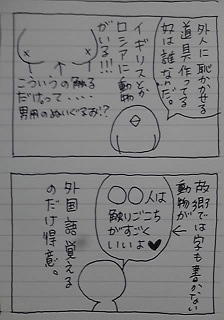 外人に恥かかせる
道具作ってる
奴は誰なんだ。
イギリスとか
ロシアに動物
がいる!!!
こういうの触る
だけって・・・・
男用のぬいぐるみ!?
故郷では字も書かない
動物が
○○人は
触りごこち
がすごく
いいよ♥
外国語覚える
のだけ得意。